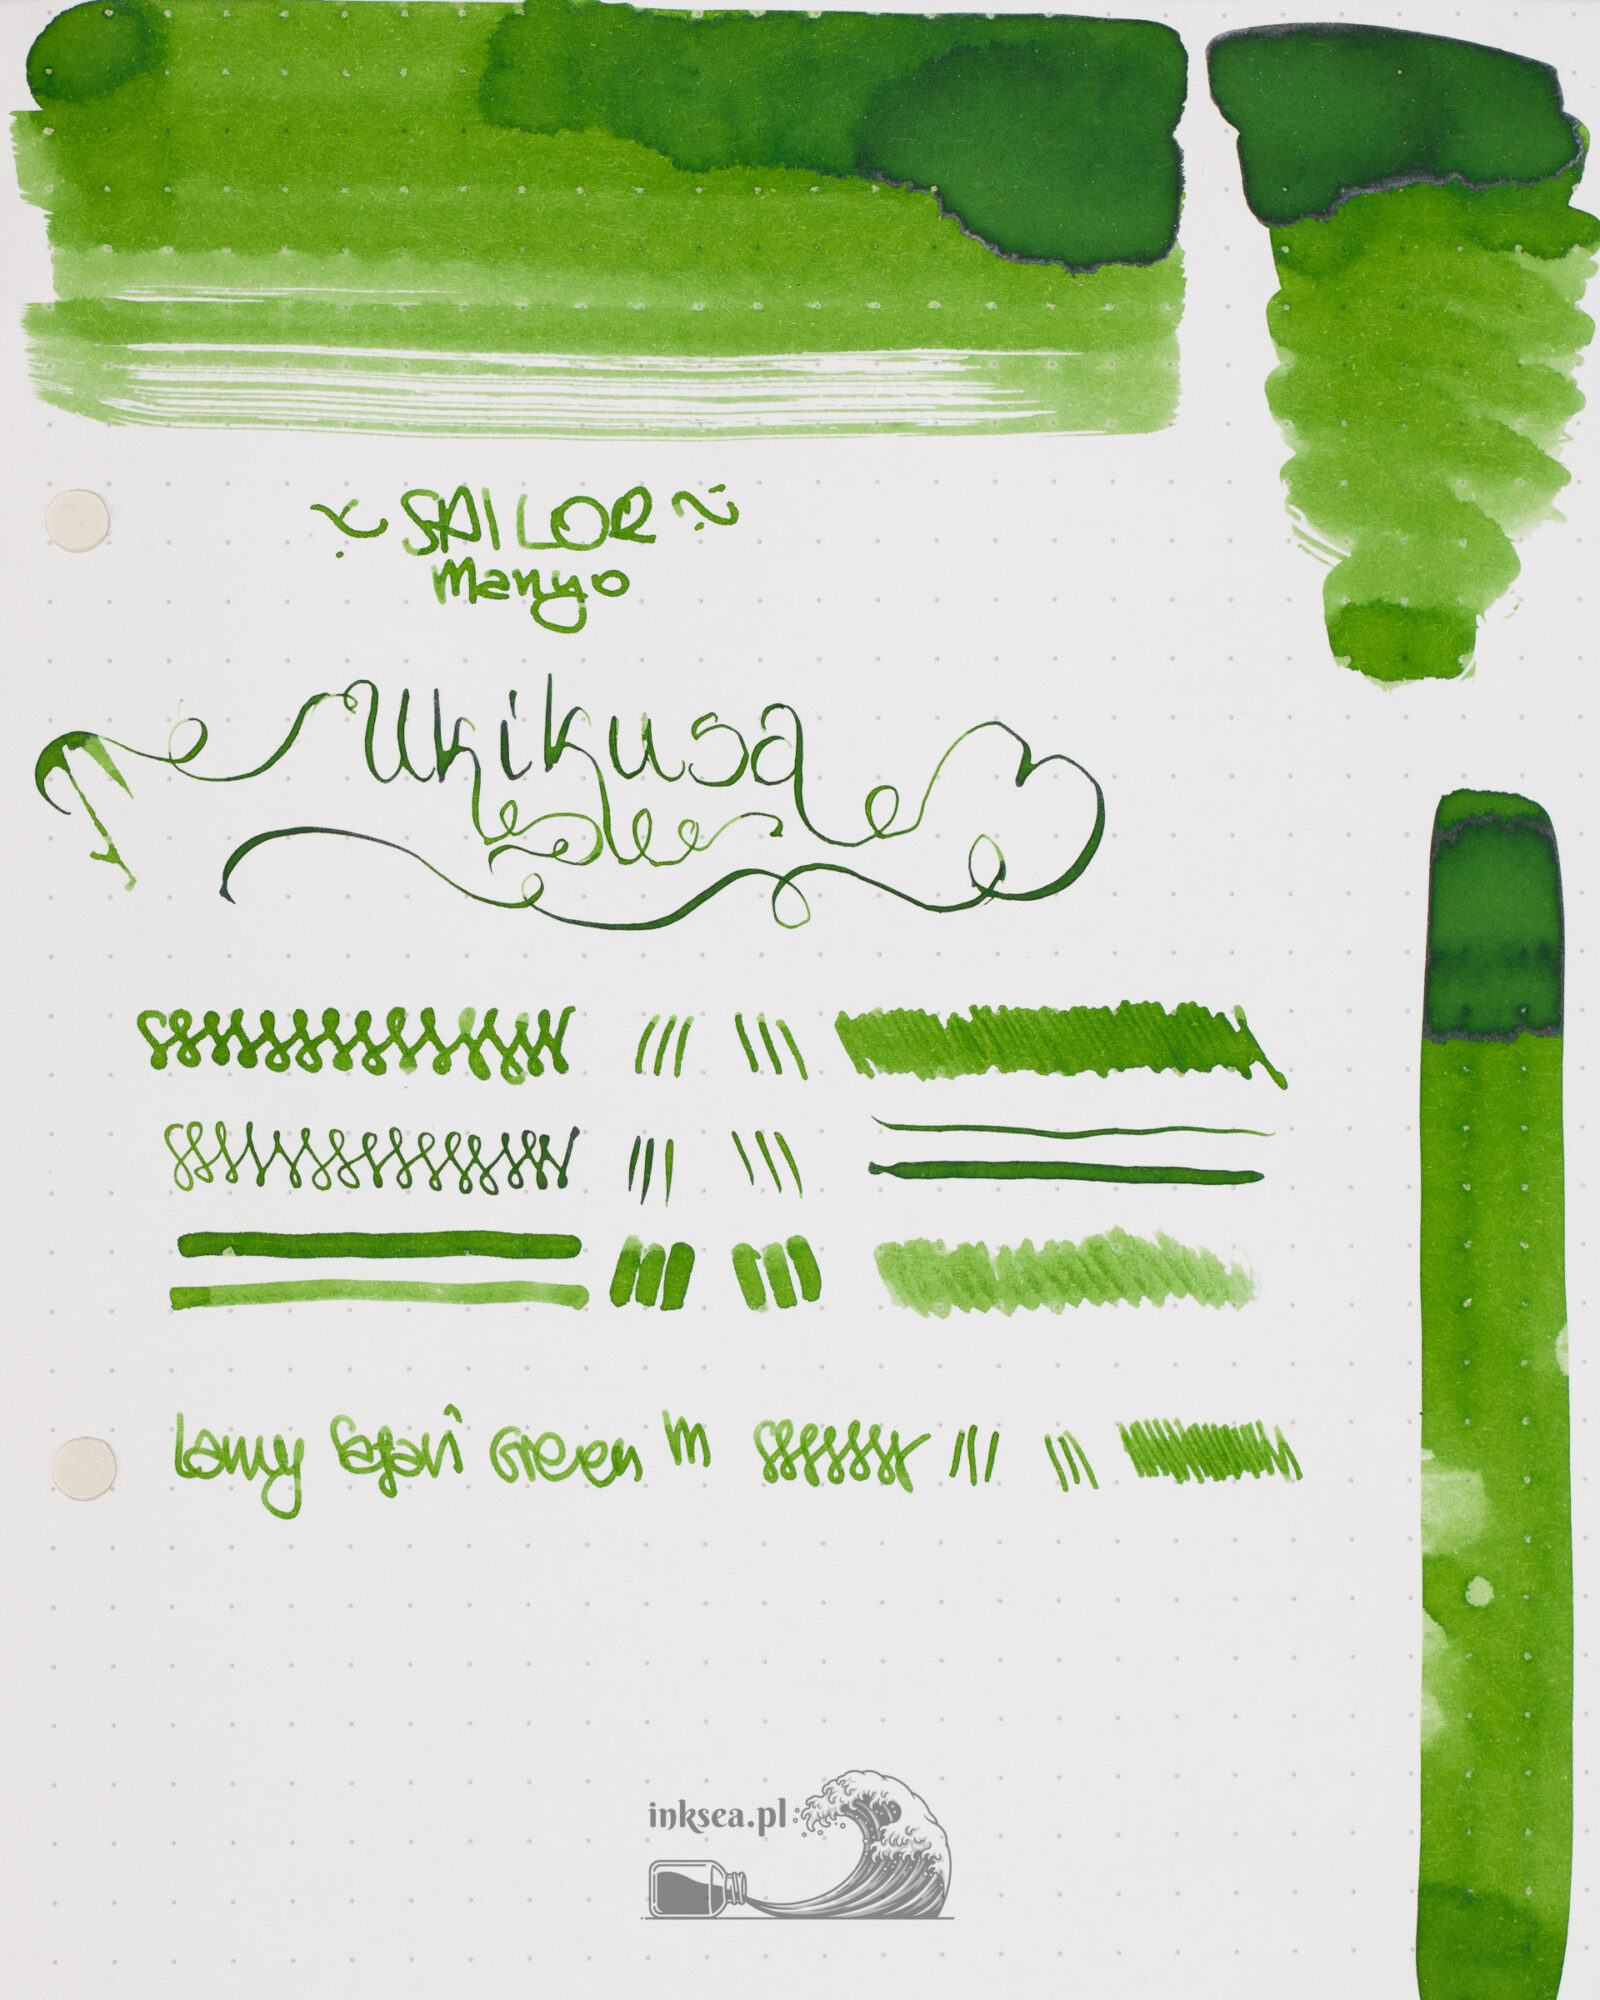 SAILOR
Manyo
Ukikusa
Lamy Safari Green M
inksea.pl